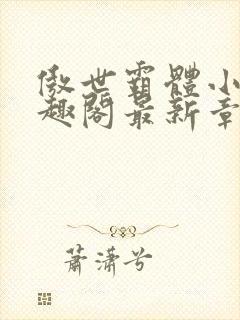 傲世霸體小
趣閣最新章
蕭瀟兮